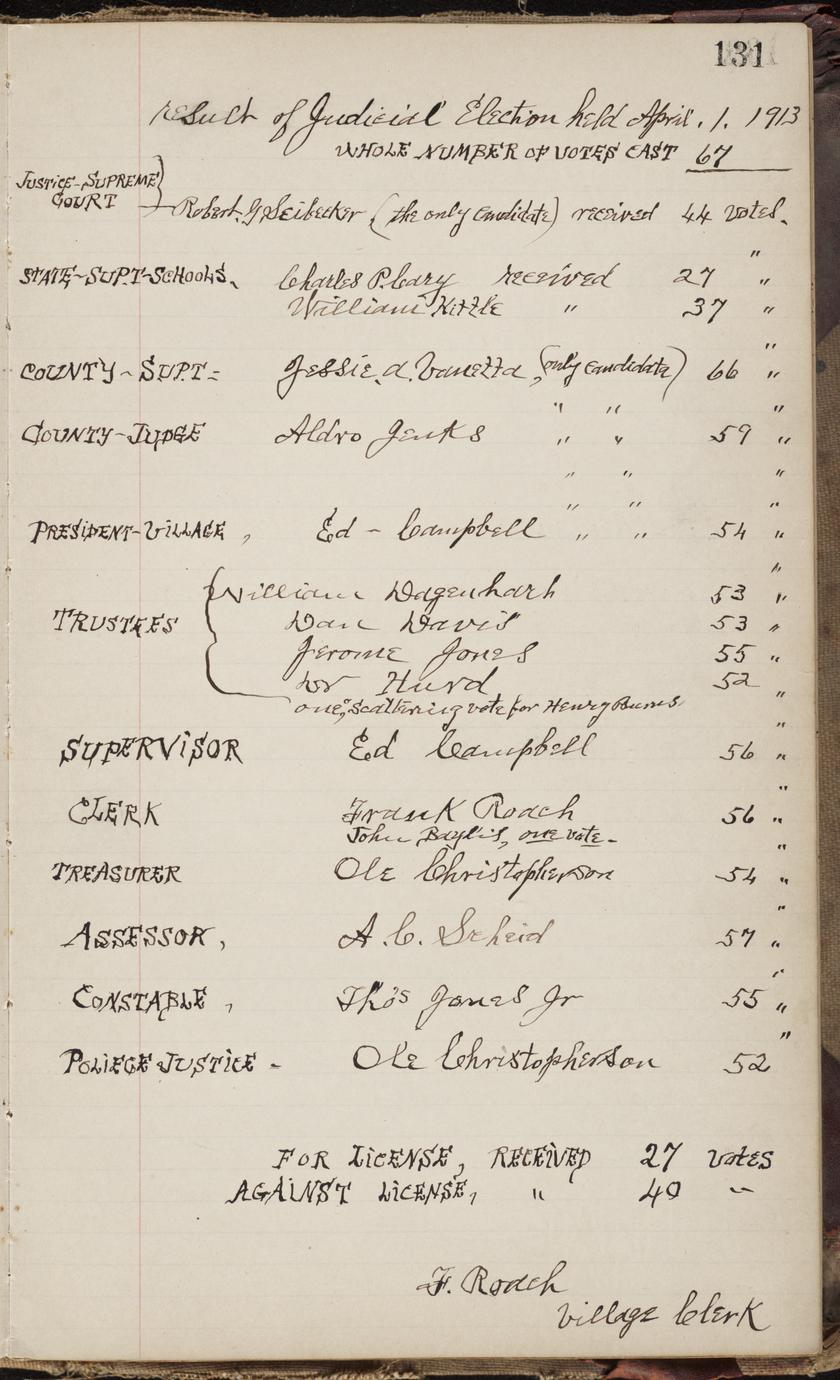 131
result of Judicial Election held April. 1. 1913
WHOLE NUMBER OF VOTES CAST 67
JUSTICE-SUPREME
COURT
Robert. G. Seibecker (the only candidate) received 44 votes.
"
STATE-SUPT-SCHOOLS, Charles P. Cary received 27 "
William Kittle " 37 "
"
COUNTY-SUPT= Jessie. A. Vanetta, (only candidate) 66 "
" " "
COUNTY-JUDGE Aldro Jenks " " 59 "
" " "
" " "
PRESIDENT-VILLAGE, Ed - Campbell " " 54 "
"
TRUSTEES { William Dagenhart 53 "
Dan Davis 53 "
Jerome Jones 55 "
Dr Hurd 52 "
one, scattering vote for Henry Burns
"
SUPERVISOR Ed Campbell 56 "
"
CLERK Frank Roach 56 "
John Baylis, one vote-
"
TREASURER Ole Christopherson 54 "
"
ASSESSOR, A. C. Scheid 57 "
"
CONSTABLE, Thos Jones Jr 55 "
"
POLIECE JUSTICE - Ole Christopherson 52
FOR LICENSE, RECEIVED 27 votes
AGAINST LICENSE, " 40 "
F. Roach
Village Clerk